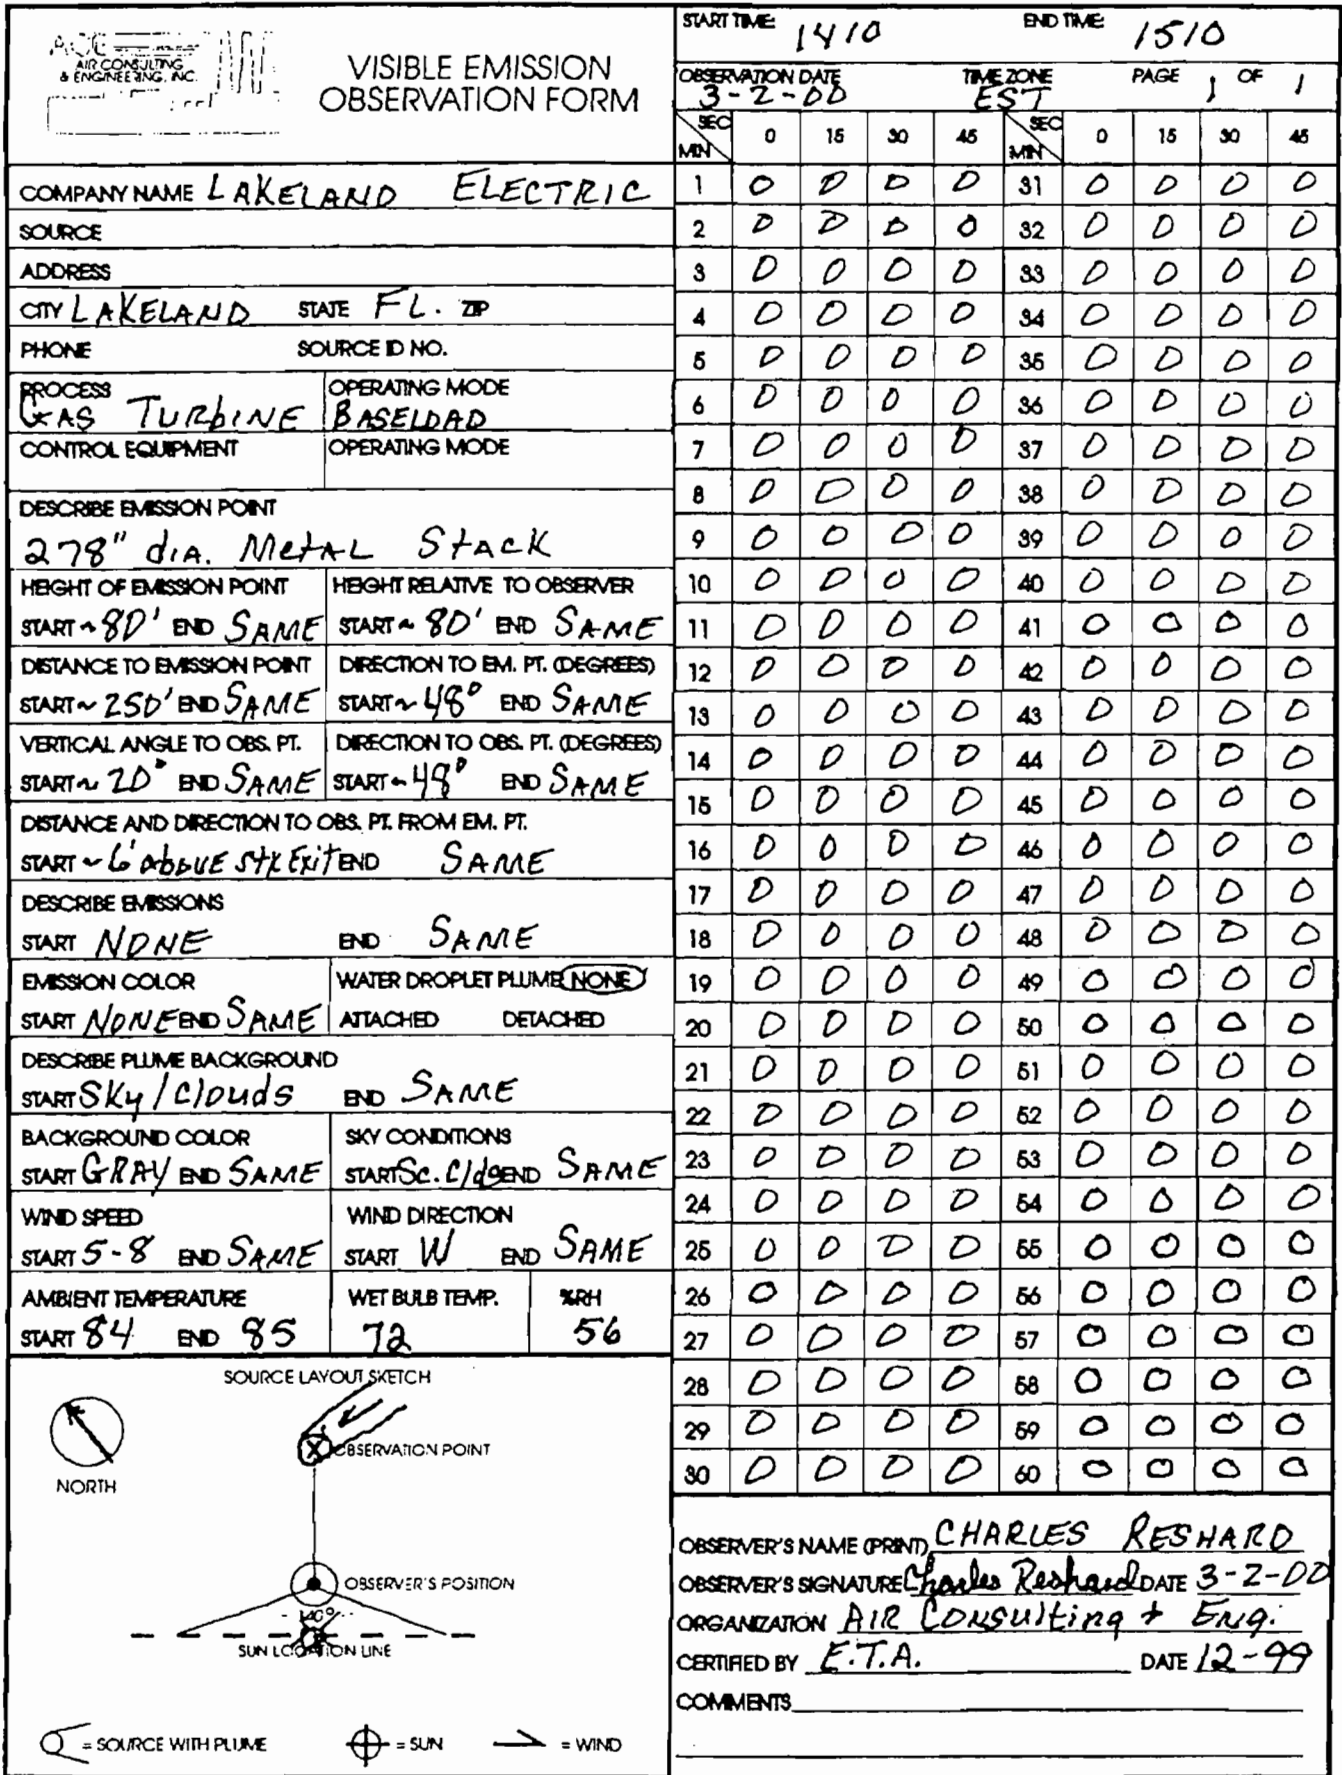 ACE
AIR CONSULTING
& ENGINEERING, INC.
VISIBLE EMISSION
OBSERVATION FORM
COMPANY NAME LAKELAND ELECTRIC
SOURCE
ADDRESS
CITY LAKELAND STATE FL. ZIP
PHONE SOURCE ID NO.
PROCESS OPERATING MODE
GAS TURBINE BASELOAD
CONTROL EQUIPMENT OPERATING MODE
DESCRIBE EMISSION POINT
278" dIA. MetAL StAcK
HEIGHT OF EMISSION POINT HEIGHT RELATIVE TO OBSERVER
START ~80' END SAME START ~ 80' END SAME
DISTANCE TO EMISSION POINT DIRECTION TO EM. PT. (DEGREES)
START ~ 250' END SAME START ~ 48° END SAME
VERTICAL ANGLE TO OBS. PT. DIRECTION TO OBS. PT. (DEGREES)
START ~ 20° END SAME START ~ 48° END SAME
DISTANCE AND DIRECTION TO OBS. PT. FROM EM. PT.
START ~ 6' AbOVE StK ExiT END SAME
DESCRIBE EMISSIONS
START NONE END SAME
EMISSION COLOR WATER DROPLET PLUME NONE
START NONE END SAME ATTACHED DETACHED
DESCRIBE PLUME BACKGROUND
START SKy / Clouds END SAME
BACKGROUND COLOR SKY CONDITIONS
START GRAY END SAME START Sc. Clds END SAME
WIND SPEED WIND DIRECTION
START 5-8 END SAME START W END SAME
AMBIENT TEMPERATURE WET BULB TEMP. %RH
START 84 END 85 72 56
SOURCE LAYOUT SKETCH
OBSERVATION POINT
NORTH
OBSERVER'S POSITION
140°
SUN LOCATION LINE
= SOURCE WITH PLUME = SUN = WIND
START TIME: 1410 END TIME: 1510
OBSERVATION DATE TIME ZONE PAGE 1 OF 1
3-2-00 EST
SEC MIN 0 15 30 45 SEC MIN 0 15 30 45
1 0 0 0 0 31 0 0 0 0
2 0 0 0 0 32 0 0 0 0
3 0 0 0 0 33 0 0 0 0
4 0 0 0 0 34 0 0 0 0
5 0 0 0 0 35 0 0 0 0
6 0 0 0 0 36 0 0 0 0
7 0 0 0 0 37 0 0 0 0
8 0 0 0 0 38 0 0 0 0
9 0 0 0 0 39 0 0 0 0
10 0 0 0 0 40 0 0 0 0
11 0 0 0 0 41 0 0 0 0
12 0 0 0 0 42 0 0 0 0
13 0 0 0 0 43 0 0 0 0
14 0 0 0 0 44 0 0 0 0
15 0 0 0 0 45 0 0 0 0
16 0 0 0 0 46 0 0 0 0
17 0 0 0 0 47 0 0 0 0
18 0 0 0 0 48 0 0 0 0
19 0 0 0 0 49 0 0 0 0
20 0 0 0 0 50 0 0 0 0
21 0 0 0 0 51 0 0 0 0
22 0 0 0 0 52 0 0 0 0
23 0 0 0 0 53 0 0 0 0
24 0 0 0 0 54 0 0 0 0
25 0 0 0 0 55 0 0 0 0
26 0 0 0 0 56 0 0 0 0
27 0 0 0 0 57 0 0 0 0
28 0 0 0 0 58 0 0 0 0
29 0 0 0 0 59 0 0 0 0
30 0 0 0 0 60 0 0 0 0
OBSERVER'S NAME (PRINT) CHARLES RESHARD
OBSERVER'S SIGNATURE Charles Reshard DATE 3-2-00
ORGANIZATION AIR Consulting + Eng.
CERTIFIED BY E.T.A. DATE 12-99
COMMENTS